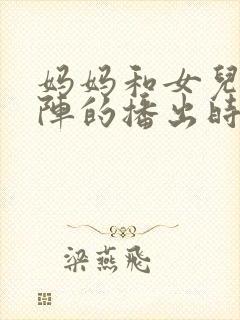 妈妈和女兒
陣的播出時
梁燕飛